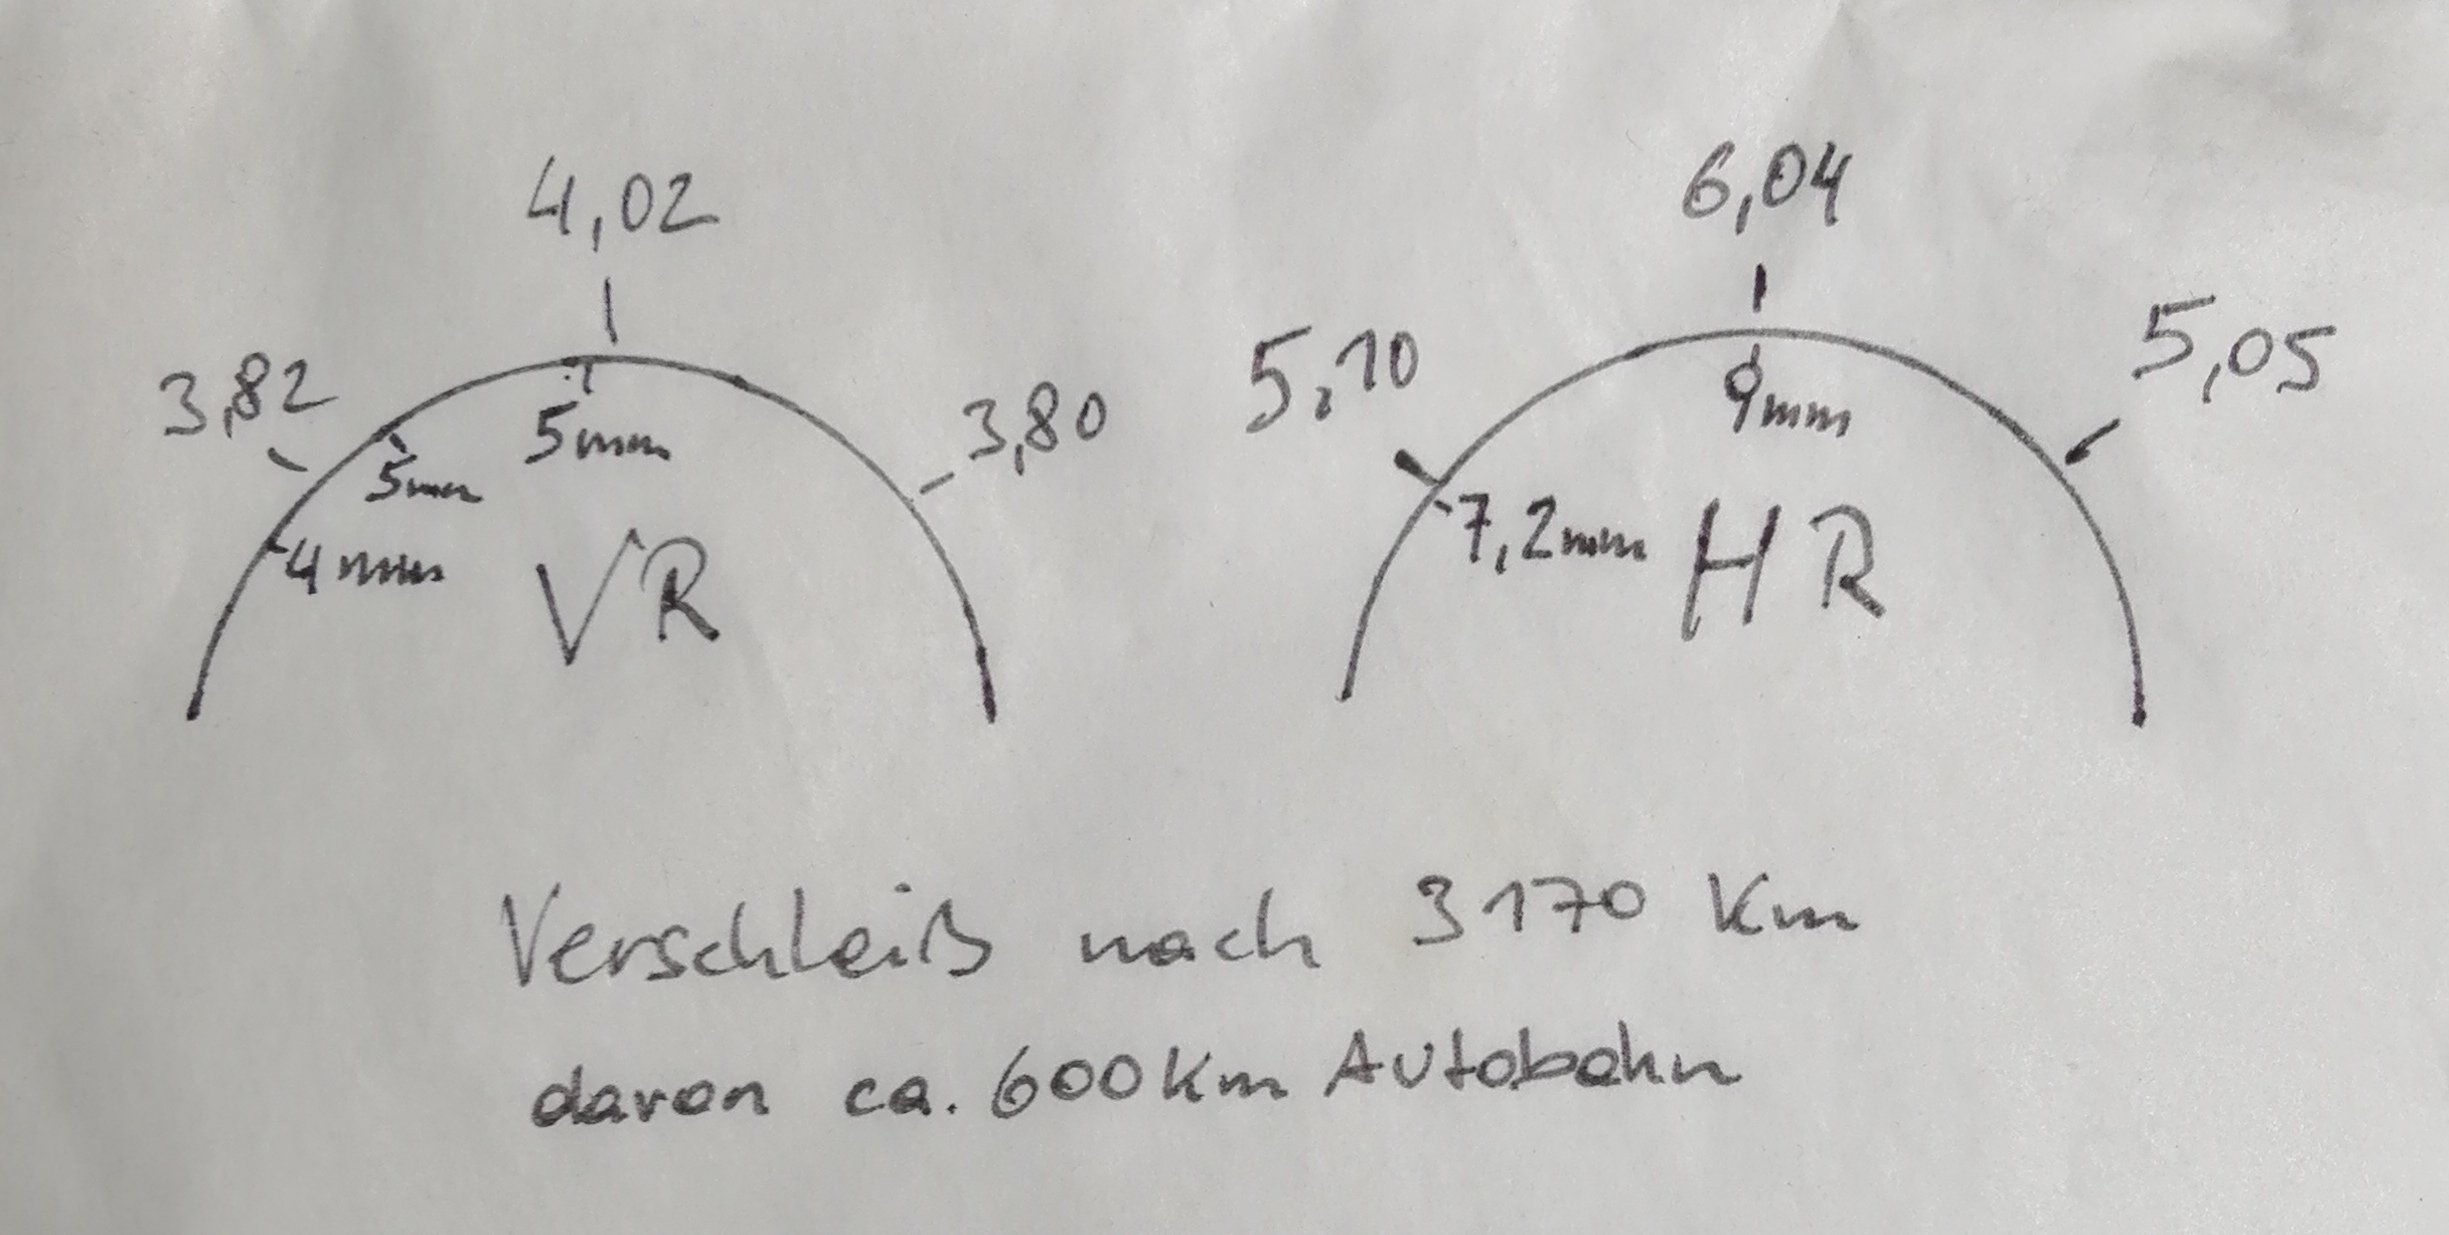 4,02
3,82
3,80
5mm
5mm
4mm
VR
6,04
5,10
5,05
9mm
7,2mm
HR
Verschleiß nach 3170 Km
davon ca. 600 Km Autobahn